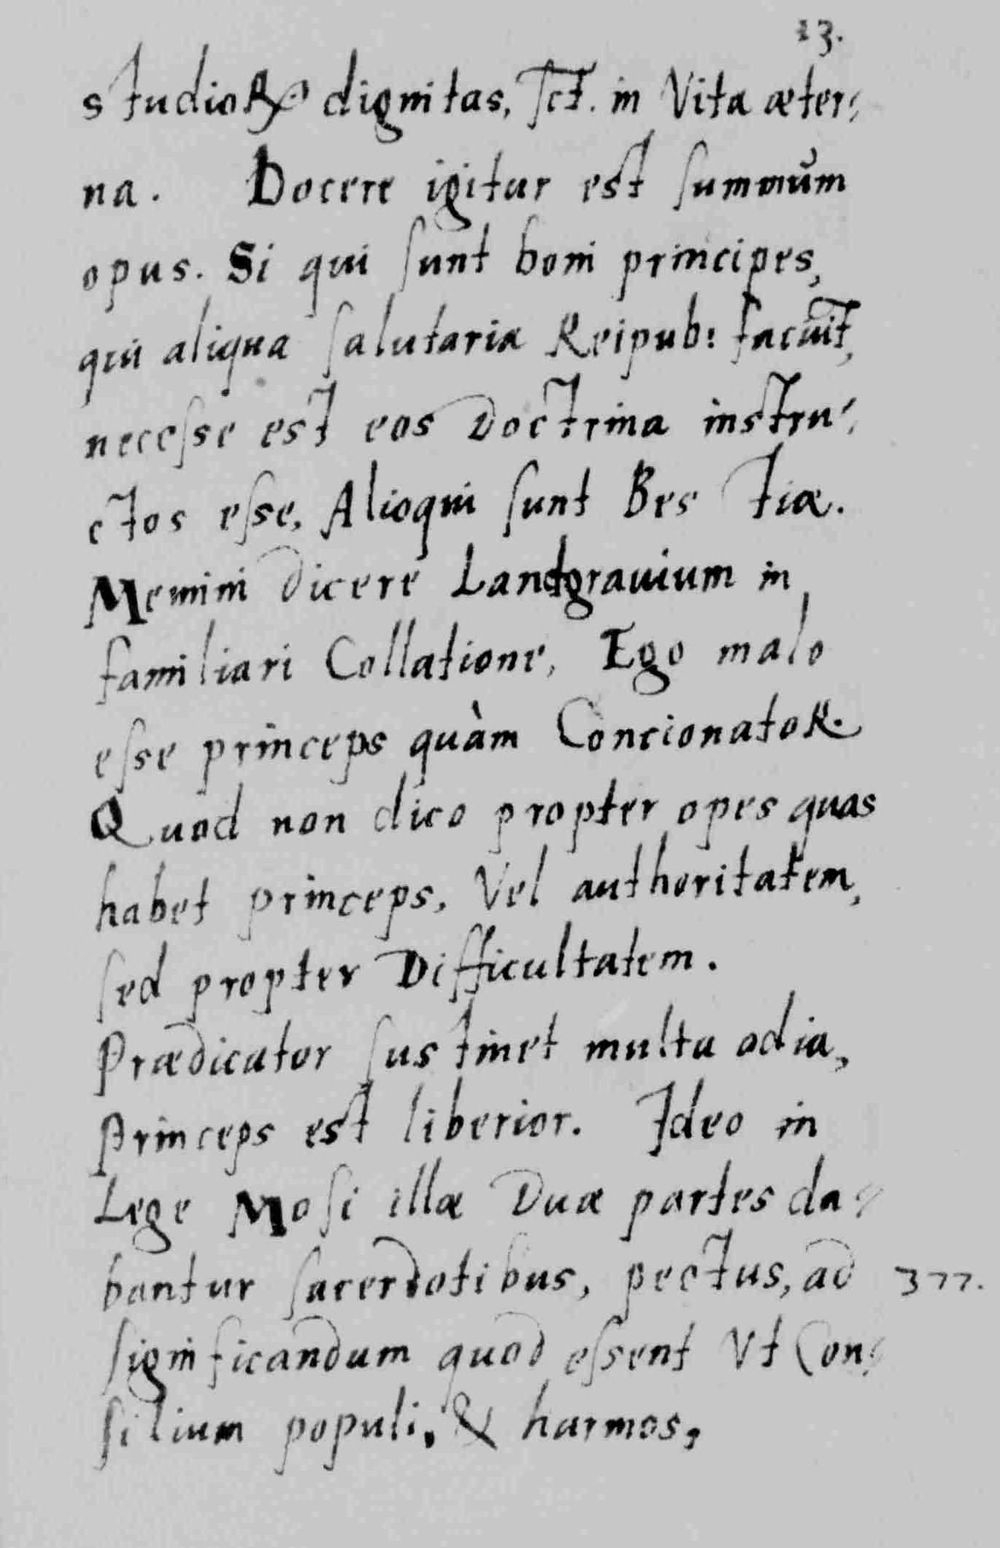 13.
studioꝝ dignitas, sct. in Vita æter⸗
na. Docere igitur est summum
opus. Si qui sunt boni principes,
qui aliqua salutaria Reipub: faciũt,
necesse est eos Doctrina instru⸗
ctos esse, Alioqui sunt Bestiæ.
Memini dicere Landgrauium in
familiari Collatione, Ego malo
esse princeps quàm Concionator.
Quod non dico propter opes quas
habet princeps, Vel authoritatem,
sed propter Difficultatem.
Prædicator sustinet multa odia,
Princeps est liberior. Ideo in
Lege Mosi illæ Duæ partes da⸗
bantur sacerdotibus, pectus, ad 377.
significandum quod essent Vt Con⸗
silium populi, & harmos,